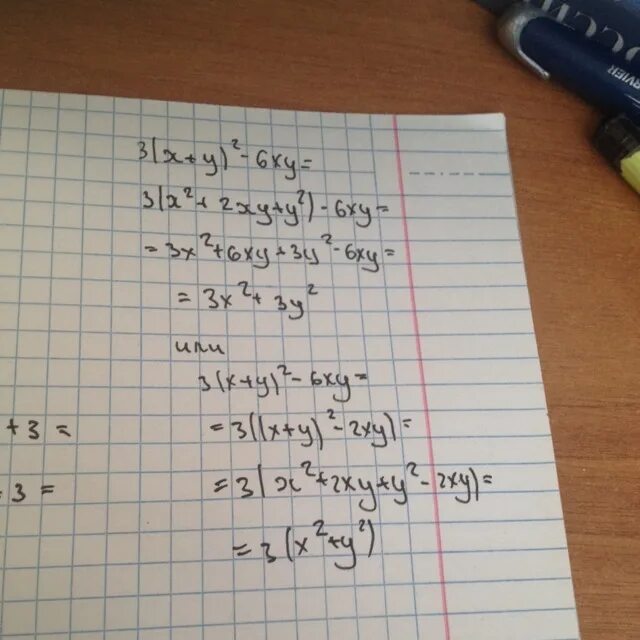 3(x+y)²-6xy=
3(x²+2xy+y²)-6xy=
=3x²+6xy+3y²-6xy=
=3x²+3y²
или
3(x+y)²-6xy=
+3=
=3((x+y)²-2xy)=
+3=
=3(x²+2xy+y²-2xy)=
=3(x²+y²)